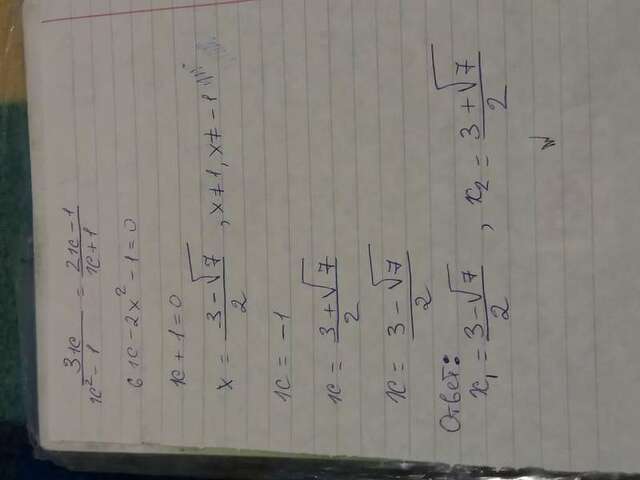 3x/(x² - 1) = (2x - 1)/(x + 1)
6x - 2x² - 1 = 0
x + 1 = 0
x = (3 - √7)/2 , x ≠ 1, x ≠ -1
x = -1
x = (3 + √7)/2
x = (3 - √7)/2
Ответ:
x₁ = (3 - √7)/2 , x₂ = (3 + √7)/2